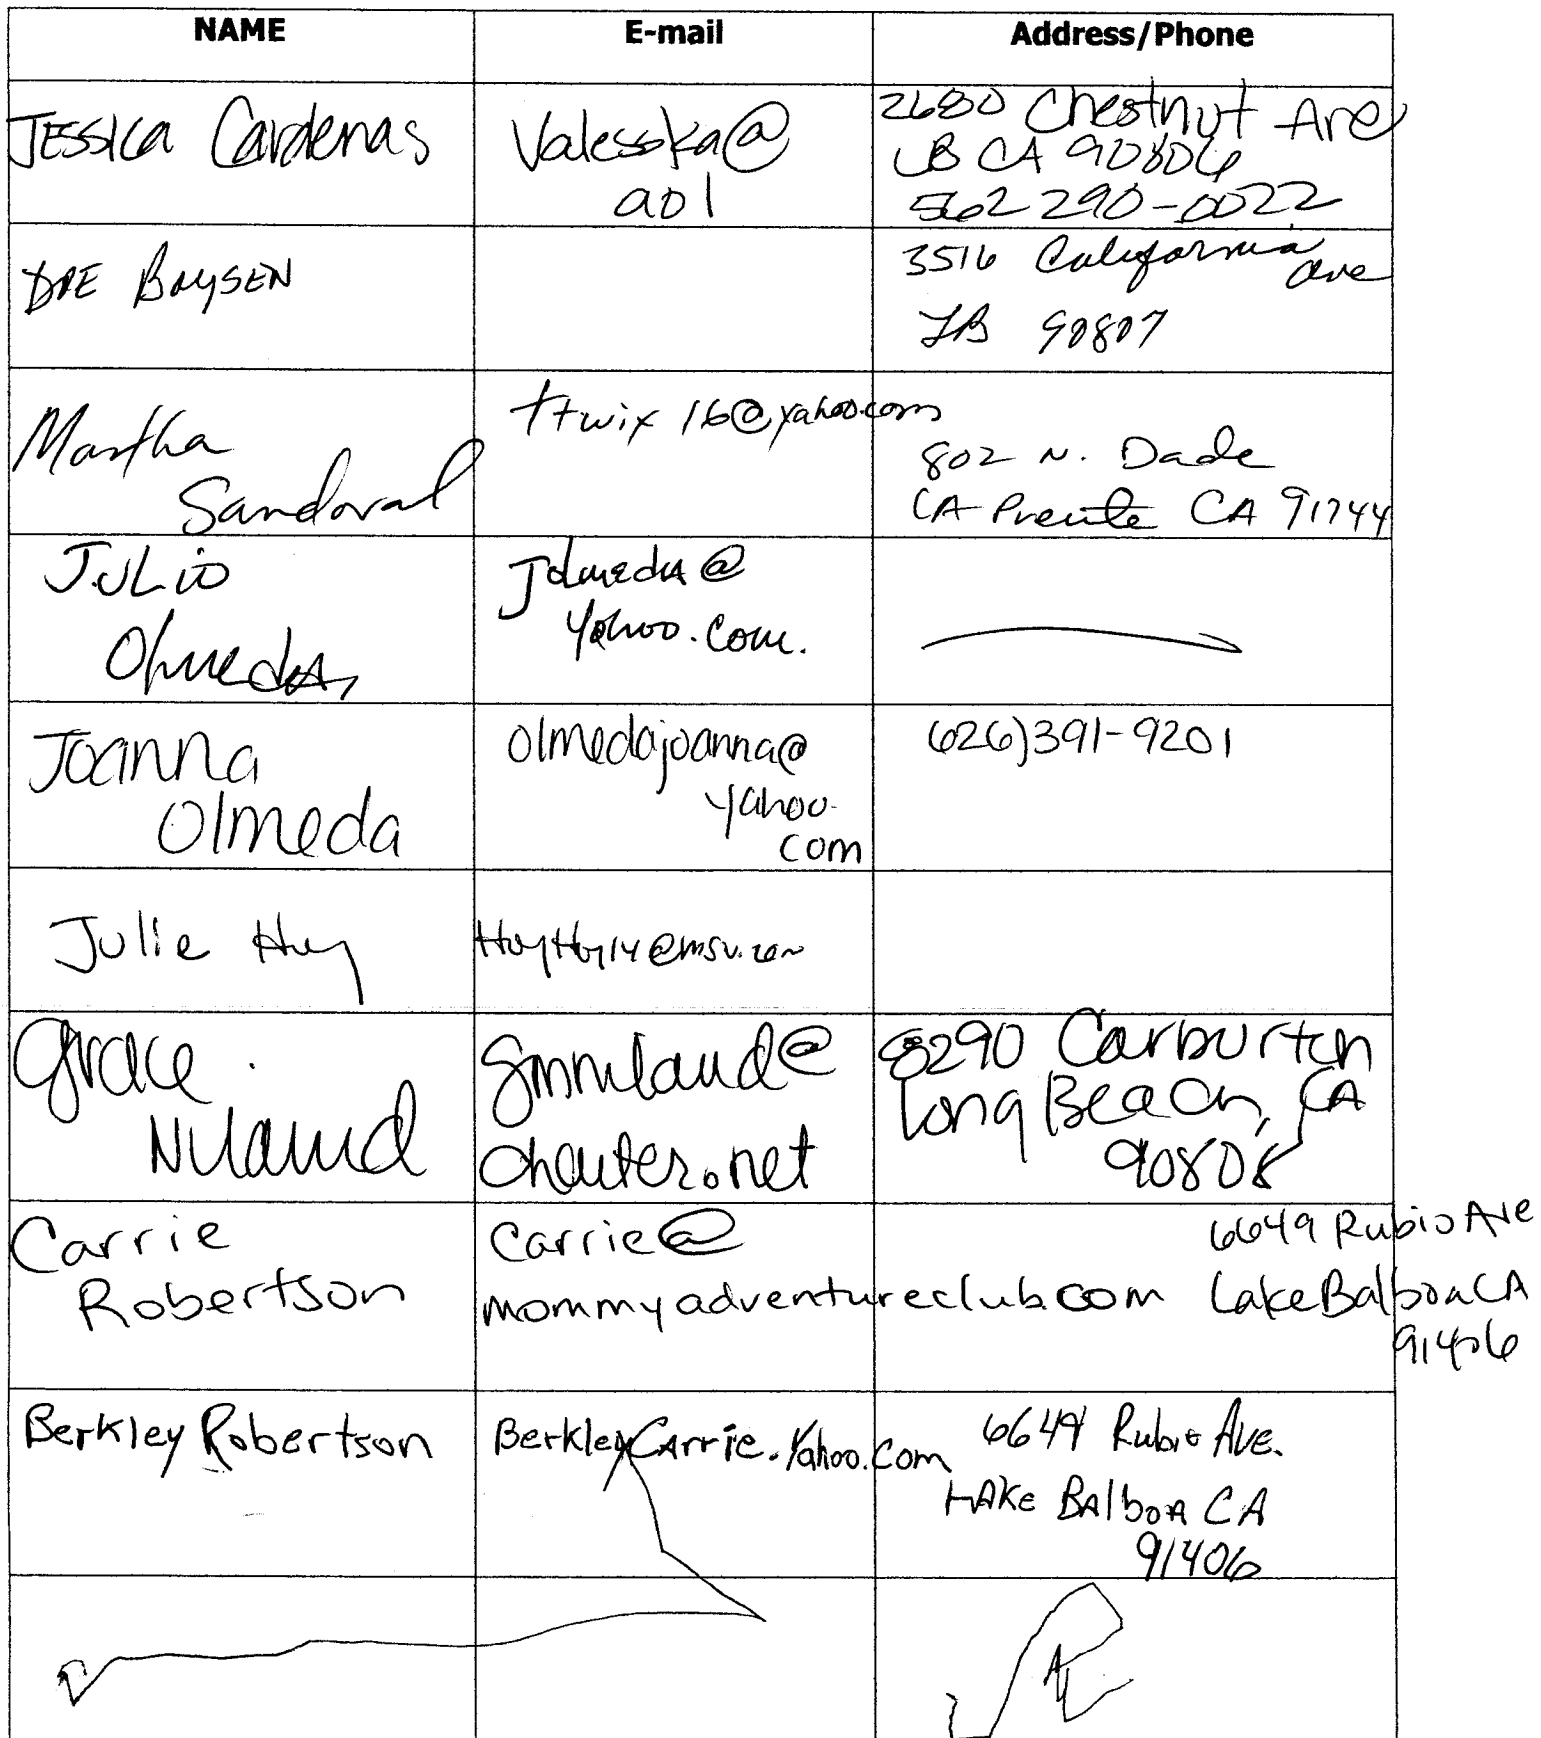 NAME E-mail Address/Phone
JESSICA Cardenas
Valesska@
aol
2680 Chestnut Ave
LB CA 90806
562 290-0022
DEE BOYSEN
3516 California Ave
LB 90807
Martha
Sandoval
ttwix16@yahoo.com
802 N. Dade
CA 91744
JULIO
Olmeda
Jolmeda@
yahoo.com.
Joanna
Olmeda
olmedajoanna@
yahoo.
com
(626)391-9201
Julie Huy
HuyHuy14@msn.com
Grace
Niland
gmniland@
charter.net
8290 Carburton
Long Beach, CA
90808
Carrie
Robertson
Carrie@
mommyadventureclub.com
6649 Rubio Ave
Lake Balboa CA
91406
Berkley Robertson
BerkleyCarrie.Yahoo.com
6649 Rubio Ave.
LAKE BAlboA CA
91406